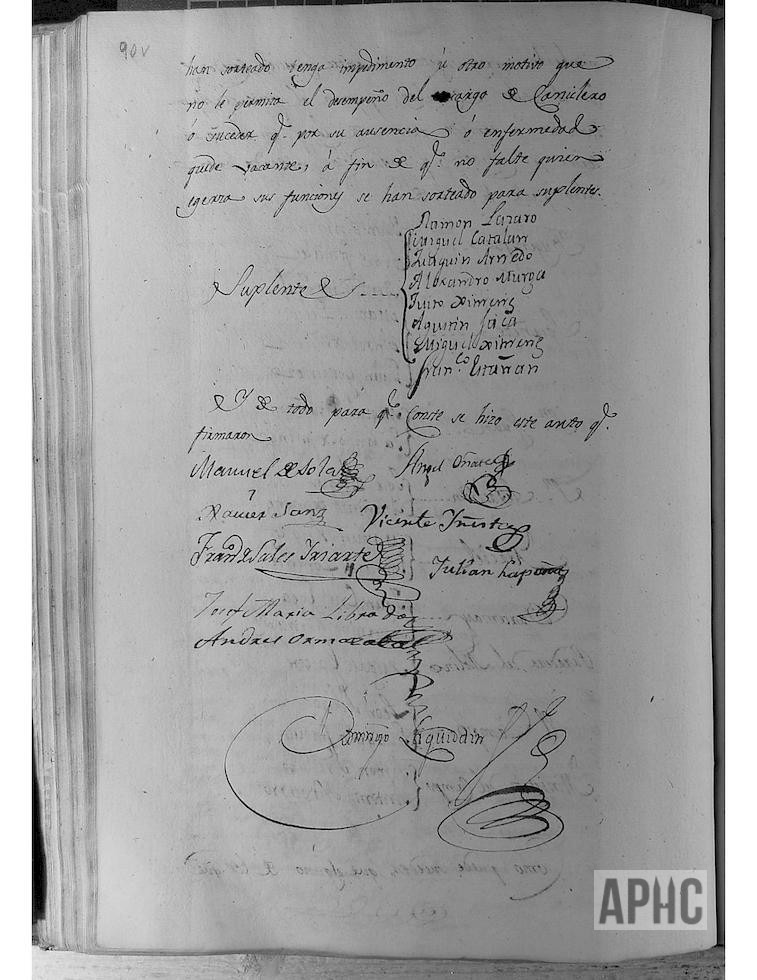 90v
han sorteado tenga impedimento ú otro motivo que
no le permita el desempeño del cargo de Candelero
ó suceder q.e por su ausencia ó enfermedad
quede vacante, á fin de q.e no falte quien
egerza sus funciones se han sorteado para suplentes.
Ramon Lazaro
Miguel Catalan
Juaquin Arnedo
Suplentes
Alexandro Murga
Justo Ximenz
Agustin
Miguel Ximenz
Fran.co Estañan
Y de todo para q.e Conste se hizo este auto q.e
firmaron
Manuel de Sola
Angel Oñate
Xavier Sanz
Vicente
Fran.co de Sales Iriarte
Julian
Josef Maria Librada
Andres Ormazabal
Domingo
APHC